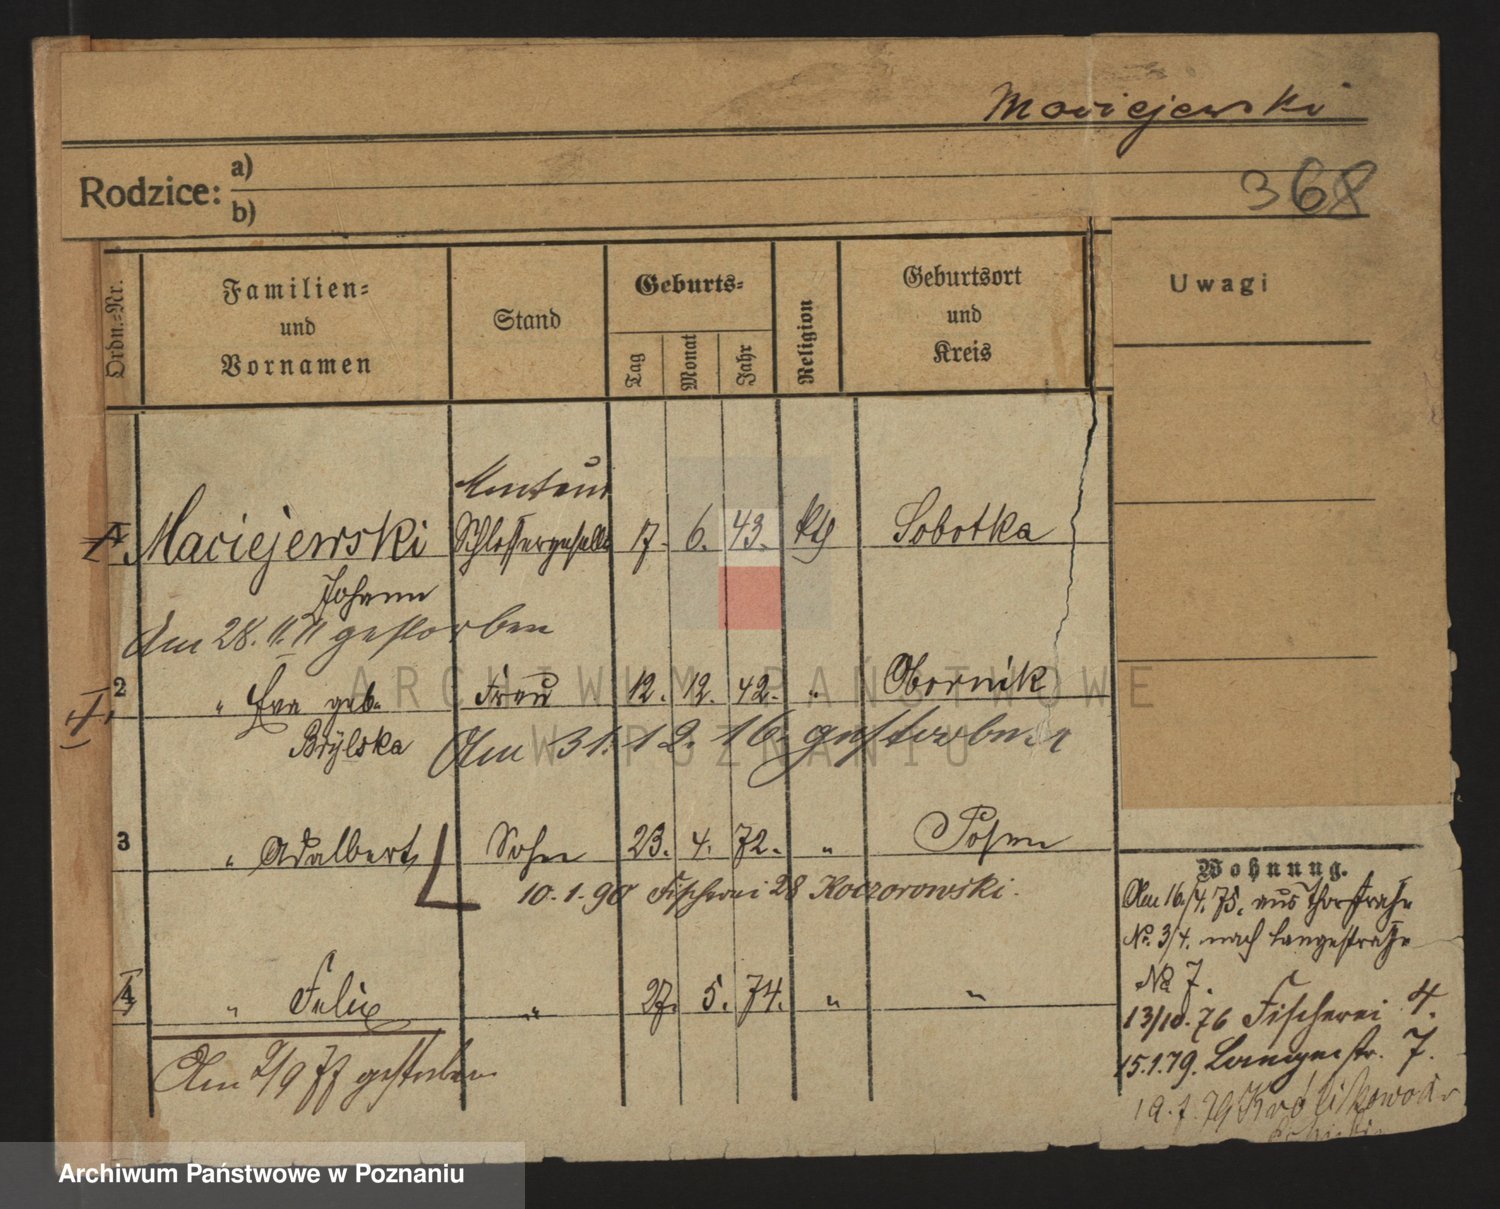 Maciejewski
Rodzice: a)
b)
368
Ordn.-Nr.
Familien-
und
Vornamen
Stand
Geburts-
Tag
Monat
Jahr
Religion
Geburtsort
und
Kreis
Uwagi
Monteur
1 Maciejewski Schlossergeselle 17. 6. 43. kth Sobotka
Johann
Am 28. 11. 71 gestorben
2 " Eva geb. Frau 12. 12. 42. " Obornik
Brÿlska Am 31. 12. 16. gestorben
3 " Adalbert Sohn 23. 4. 72. " Posen
10.1.90 Fischerei 28 Koczorowski.
4 " Felix " 27. 5. 74. " "
Am 2/9 77 gestorben
Wohnung.
Am 16/4. 75. aus Thorstraße
No. 3/4. nach Langestraße
No 7.
13/10. 76 Fischerei 4.
15.1.79. Langestr. 7.
ARCHIWUM PAŃSTWOWE
W POZNANIU
Archiwum Państwowe w Poznaniu